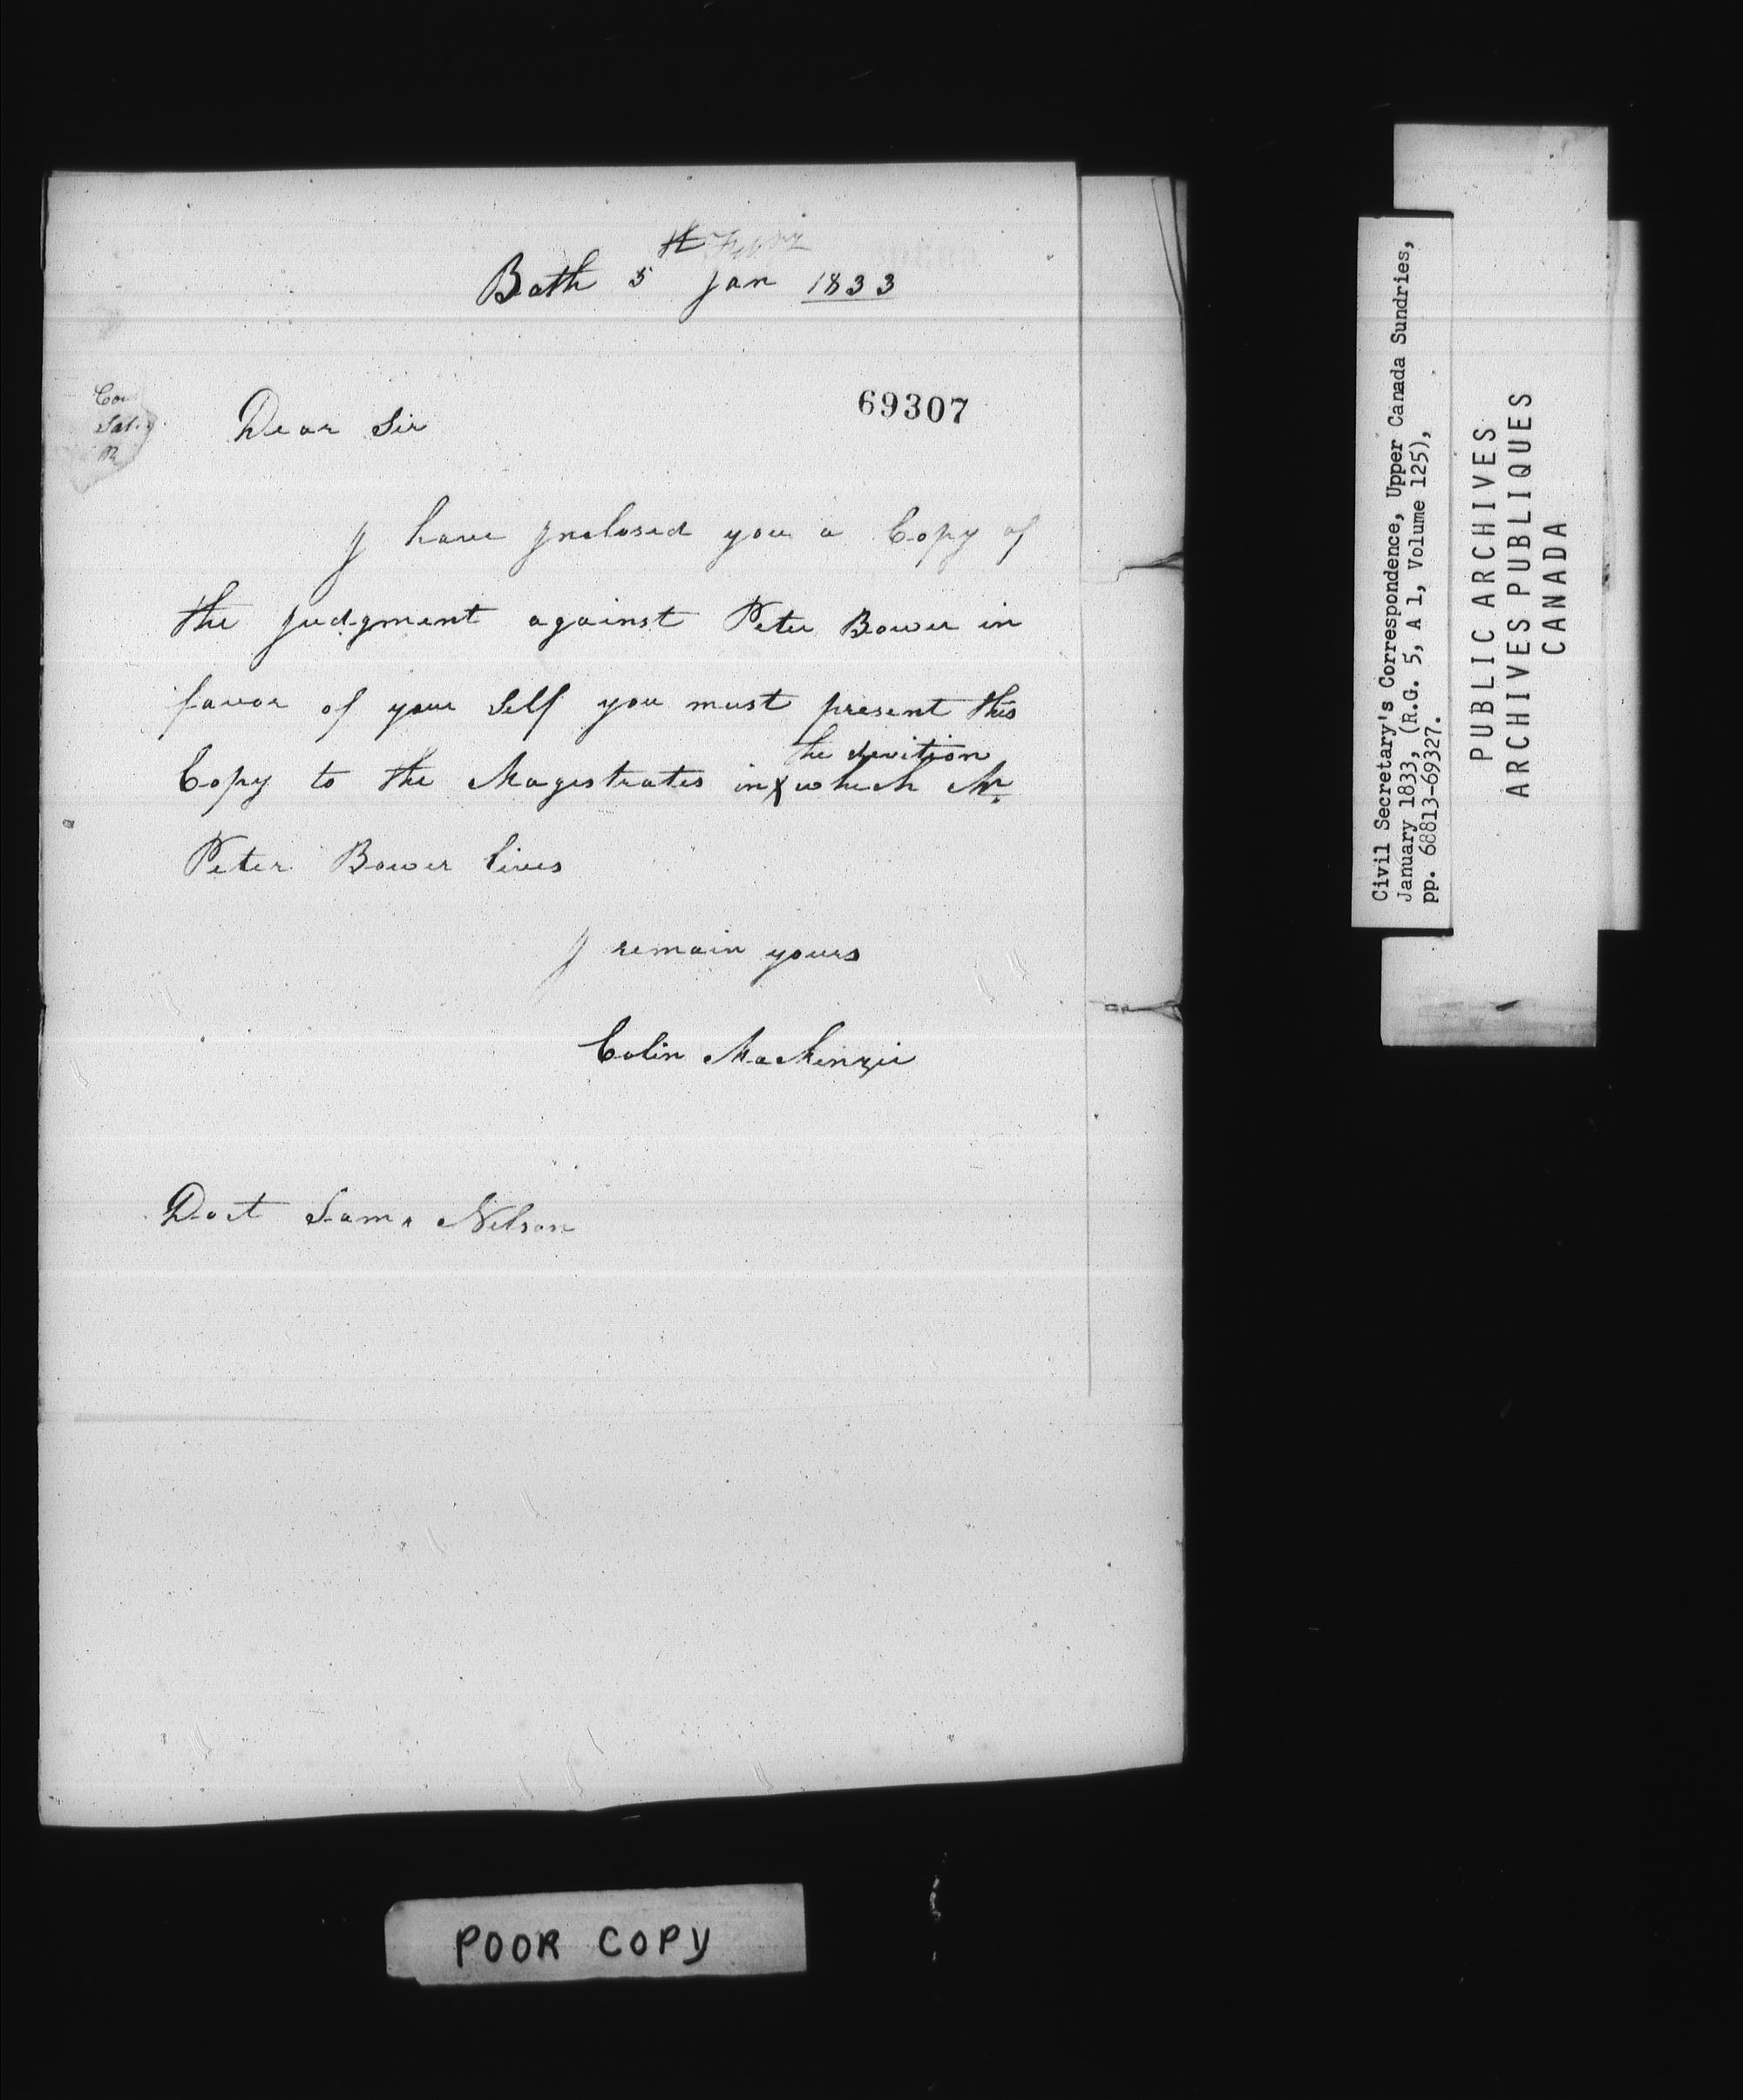 Bath 5th Jan 1833
69307
Dear Sir
I have Inclosed you a Copy of
the Judgment against Peter Bower in
favor of your Self you must present this
the devition
Copy to the Magistrates in x which Mr.
Peter Bower lives
I remain yours
Colin MacKenzie
Doct Saml Nelson
POOR COPY
Civil Secretary's Correspondence, Upper Canada Sundries,
January 1833, (R.G. 5, A 1, Volume 125),
pp. 68813-69327.
PUBLIC ARCHIVES
ARCHIVES PUBLIQUES
CANADA